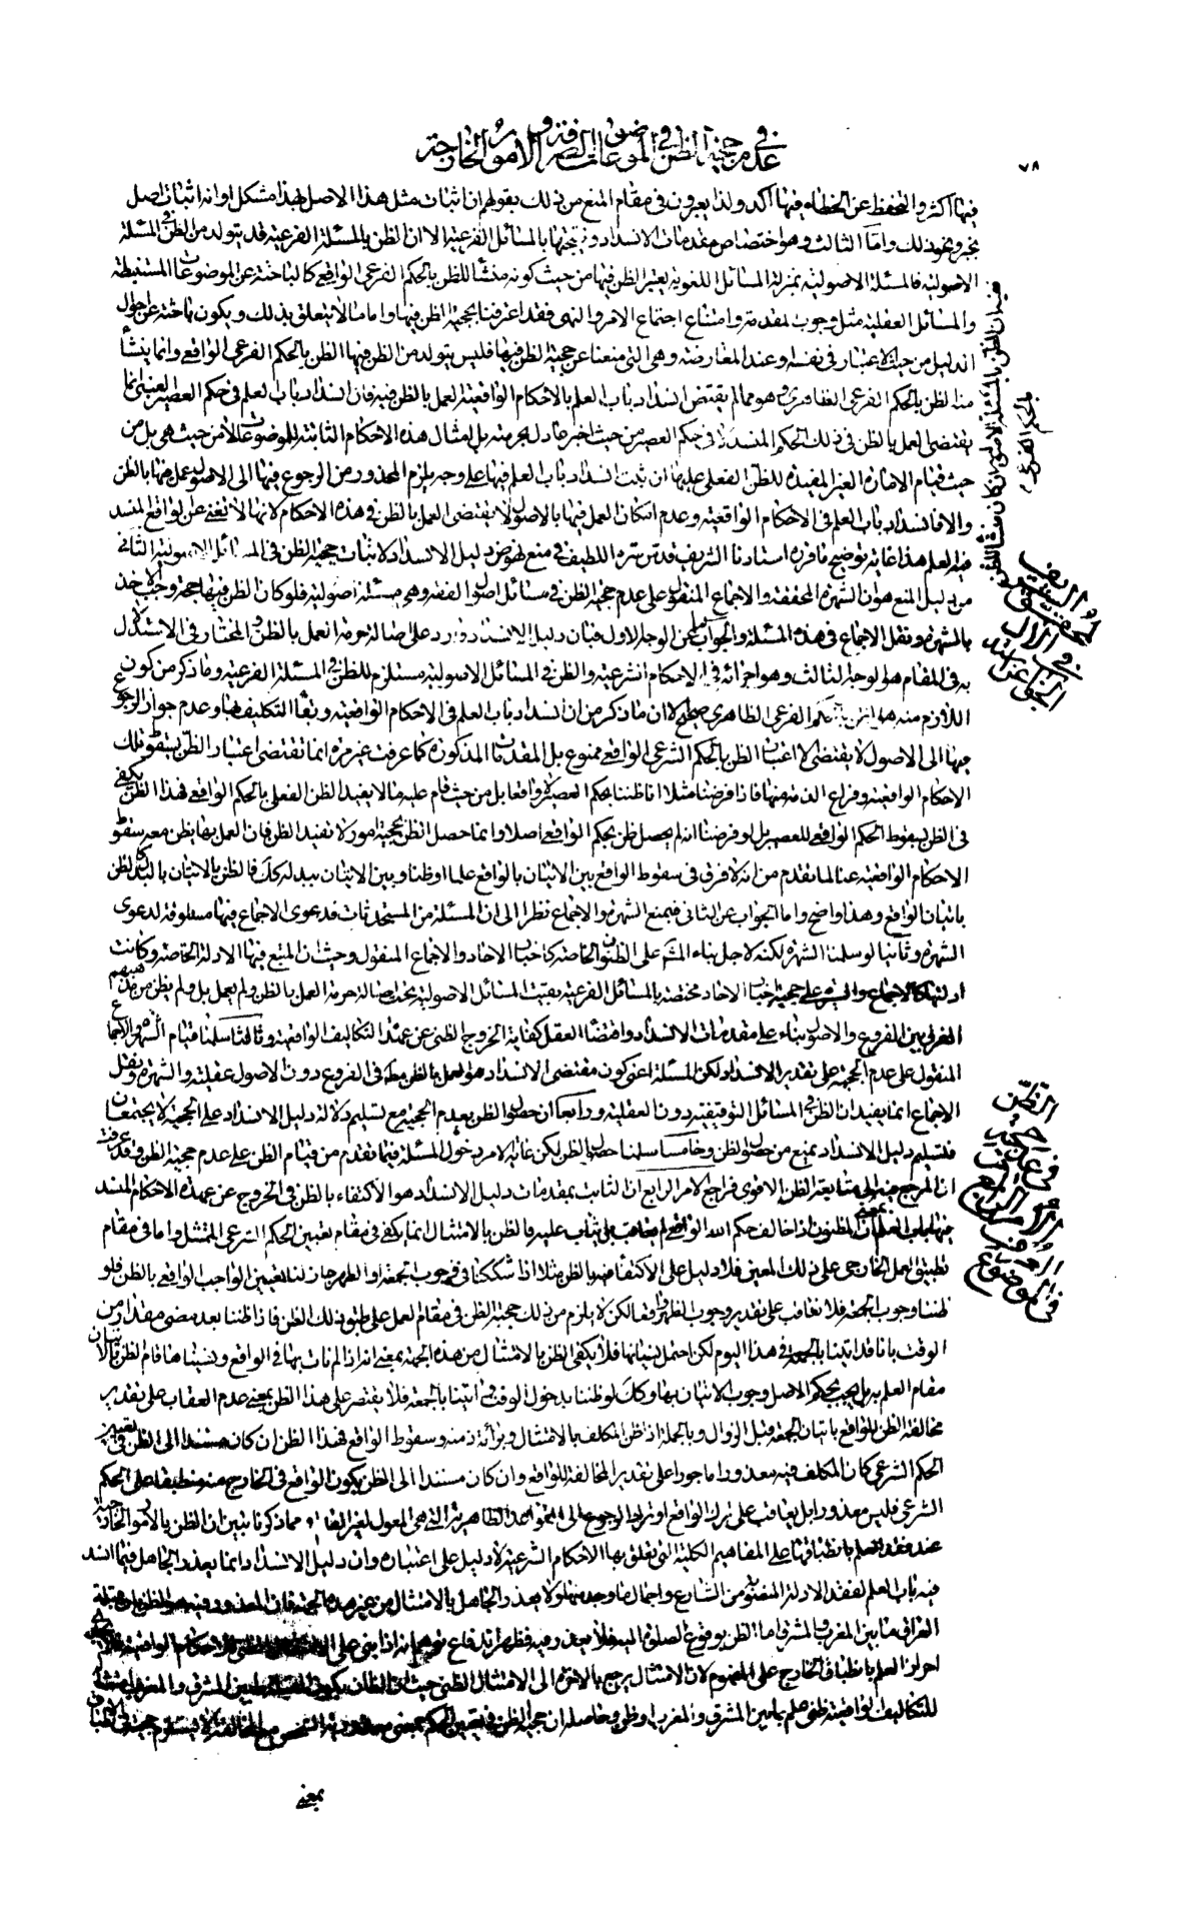 في عدم حجية الظن في الموضوعات الصرفة والأمور الخارجة
٧٨
فيها اكثر والتحفظ عن الخطاء فيها آكد ولذا يعبرون في مقام المنع من ذلك بقولهم ان اثبات مثل هذا الاصل بهذا مشكل او انه اثبات اصل
بخبر ونحو ذلك واما الثالث وهو اختصاص مقدمات الانسداد ونتيجتها بالمسائل الفرعية الا ان الظن بالمسئلة الفرعية قد يتولد من الظن في المسئلة
الاصولية فالمسئلة الاصولية بمنزلة المسائل اللغوية يعتبر الظن فيها من حيث كونه منشأ للظن بالحكم الفرعي الواقعي كالباحثة عن الموضوعات المستنبطة
والمسائل العقلية مثل وجوب المقدمة وامتناع اجتماع الامر والنهى فقد اعترفنا بحجية الظن فيها واما ما لا يتعلق بذلك ويكون باحثة عن احوال
الدليل من حيث الاعتبار في نفسه او عند المعارضة وهى التى منعنا عن حجية الظن فيها فليس يتولد من الظن فيها الظن بالحكم الفرعى الواقعي وانما ينشأ
منه الظن بالحكم الفرعى الظاهرى وهو مما لم يقتض انسداد باب العلم بالاحكام الواقعية العمل بالظن فيه فان انسداد باب العلم في حكم العصير العنبى انما
يقتضى العمل بالظن في ذلك الحكم المنسد لا في حكم العصير من حيث اخبر عادل بحرمته بل امثال هذه الاحكام الثابتة للموضوعات لا من حيث هى بل من
حيث قيام الامارة الغير المفيدة للظن الفعلى عليها ان ثبت انسداد باب العلم فيها على وجه يلزم المحذور من الرجوع فيها الى الاصول عمل فيها بالظن
والا فانسداد باب العلم في الاحكام الواقعية وعدم امكان العمل فيها بالاصول لا يقتضى العمل بالظن في هذه الاحكام لانها لا تغنى عن الواقع المنسد
فيه العلم هذا غاية توضيح ما قرره استادنا الشريف قدس سره اللطيف في منع نهوض دليل الانسداد لاثبات حجية الظن في المسائل الاصولية الثانى
من دليل المنع هو ان الشهرة المحققة والاجماع المنقول على عدم حجية الظن في مسائل اصول الفقه وهى مسئلة اصولية فلو كان الظن فيها حجة وجب الاخذ
بالشهرة ونقل الاجماع في هذه المسئلة والجواب اما عن الوجه الاول فبان دليل الانسداد وارد على اصالة حرمة العمل بالظن والمختار في الاستدلال
به في المقام هو الوجه الثالث وهو اجرائه في الاحكام الشرعية والظن في المسائل الاصولية مستلزم للظن في المسئلة الفرعية وما ذكر من كون
اللازم منه هو الظن بالحكم الفرعى الظاهرى صحيح الا ان ما ذكر من ان انسداد باب العلم في الاحكام الواقعية وبقاء التكليف بها وعدم جواز الرجوع
فيها الى الاصول لا يقتضى الا اعتبار الظن بالحكم الشرعى الواقعى ممنوع بل المقدمات المذكورة كما عرفت غير مرة انما تقتضى اعتبار الظن بسقوط تلك
الاحكام الواقعية وفراغ الذمة منها فاذا فرضنا مثلا انا ظننا بحكم العصير لا واقعا بل من حيث قام عليه ما لا يفيد الظن الفعلى بالحكم الواقعى فهذا الظن يكفي
في الظن بسقوط الحكم الواقعى للعصير بل لو فرضنا انه لم يحصل ظن بحكم الواقعى اصلا وانما حصل الظن بحجية امور لا تفيد الظن فان العمل بها يظن معه سقوط
الاحكام الواقعية عنا لما تقدم من انه لا فرق في سقوط الواقع بين الاتيان بالواقع علما او ظنا وبين الاتيان ببدله كذلك فالظن بالاتيان بالبدل كالظن
باتيان الواقع وهذا واضح واما الجواب عن الثانى فبمنع الشهرة والاجماع نظرا الى ان المسئلة من المستحدثات فدعوى الاجماع فيها مساوقة لدعوى
الشهرة وثانيا لو سلمنا الشهرة لكنه لاجل بناء المشهور على الظنون الخاصة كاخبار الاحاد والاجماع المنقول وحيث ان المتبع فيها الادلة الخاصة وكانت
ادلتها كالاجماع والسيرة على حجية اخبار الاحاد مختصة بالمسائل الفرعية بقيت المسائل الاصولية تحت اصالة حرمة العمل بالظن ولم يعلم بل ولم يظن من مذهبهم
الفرق بين الفروع والاصول بناء على مقدمات الانسداد واقتضاء العقل كفاية الخروج الظنى عن عهدة التكاليف الواقعية وثالثا سلمنا قيام الشهرة والاجماع
المنقول على عدم الحجية على تقدير الانسداد لكن المسئلة اعنى كون مقتضى الانسداد هو العمل بالظن مطلقا في الفروع دون الاصول عقلية والشهرة ونقل
الاجماع انما يفيدان الظن في المسائل التوقيفية دون العقلية ورابعا ان حصول الظن بعدم الحجية مع تسليم دلالة دليل الانسداد على الحجية لا يجتمعان
فتسليم دليل الانسداد يمنع من حصول الظن وخامسا سلمنا حصول الظن لكن غاية الامر دخول المسئلة فيما تقدم من قيام الظن على عدم حجية الظن وقد عرفت
ان المرجع فيه الى متابعة الظن الاقوى فراجع الامر الرابع ان الثابت بمقدمات دليل الانسداد هو الاكتفاء بالظن في الخروج عن عهدة الاحكام المنسد
فيها باب العلم بمعنى ان المظنون اذا خالف حكم الله الواقعى لم يعاقب بل يثاب عليه فالظن بالامتثال انما يكفي في مقام تعيين الحكم الشرعى الممتثل واما في مقام
تطبيق العمل الخارجى على ذلك المعين فلا دليل على الاكتفاء فيه بالظن مثلا اذا شككنا في وجوب الجمعة او الظهر جاز لنا تعيين الواجب الواقعى بالظن فلو
ظننا وجوب الجمعة فلا نعاقب على تقدير وجوب الظهر واقعا لكن لا يلزم من ذلك حجية الظن في مقام العمل على طبق ذلك الظن فاذا ظننا بعد مضى مقدار من
الوقت بانا قد اتينا بالجمعة في هذا اليوم لكن احتمل نسيانها فلا يكفى الظن بالامتثال من هذه الجهة بمعنى انه اذا لم نات بها في الواقع ونسيناها قام الظن بالاتيان
مقام العلم به بل يجب بحكم الاصل وجوب الاتيان بها وكذلك لو ظننا بدخول الوقت واتينا بالجمعة فلا يقتصر على هذا الظن بمعنى عدم العقاب على تقدير
مخالفة الظن للواقع باتيان الجمعة قبل الزوال وبالجملة اذ ظن المكلف بالامتثال وبرائة ذمته وسقوط الواقع فهذا الظن ان كان مستندا الى الظن في تعيين
الحكم الشرعى كان المكلف فيه معذورا ماجورا على تقدير المخالفة للواقع وان كان مستندا الى الظن بكون الواقع في الخارج منه منطبقا على الحكم
الشرعى فليس معذورا بل يعاقب على ترك الواقع او ترك الرجوع الى القواعد الظاهرية التى هى المعول لغير العالم ومما ذكرنا تبين ان الظن بالامور الخارجية
عند فقد العلم بانطباقها على المفاهيم الكلية التى تعلق بها الاحكام الشرعية لا دليل على اعتباره وان دليل الانسداد انما يعذر الجاهل فيما انسد
فيه باب العلم لفقد الادلة المنصوبة من الشارع واجمال ما وجد منها ولا يعذر الجاهل بالامتثال من غير هذه الجهة فان المعذور فيه هو الظن بان قبلة
العراق ما بين المغرب والمشرق اما الظن بوقوع الصلوة اليه فلا يعذر فيه فظهر اندفاع توهم انه اذا بنى على الامتثال الظنى للاحكام الواقعية فلا يجدى
احراز العلم بانطباق الخارج على المفهوم لان الامتثال يرجع بالاخرة الى الامتثال الظنى حيث ان الظان بكون القبلة ما بين المشرق والمغرب امتثاله
للتكاليف الواقعية ظنى علم بما بين المشرق والمغرب او ظن وحاصله ان حجية الظن في تعيين الحكم بمعنى معذورية الشخص مع المخالفة لا يستلزم حجيته في الانطباق
بمعنى
فيه ان الظن بالمسئلة الاصولية ان كان منشأ للظن
بالحكم الفرعى